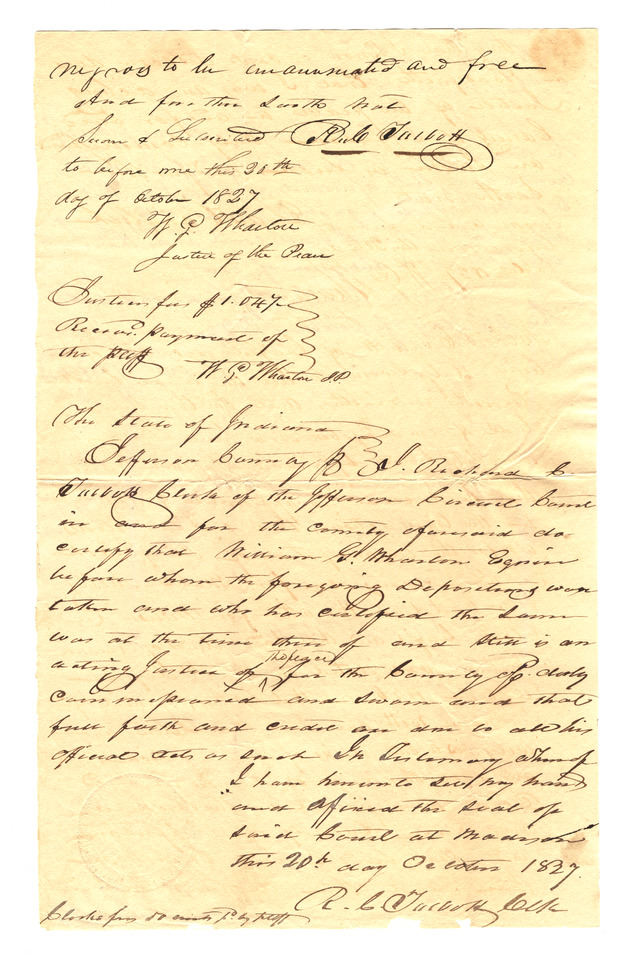 negroes to be emancipated and free
And further Saith not
Sworn & Subscribed R. C Talbott
to before me this 20th
day of October 1827
W. G Wharton
Justice of the Peace
Justices fees $1.04½
Receivd. payment of
the plff
W G Wharton J.P.
The State of Indiana
Jefferson County I. Richard C
Talbott Clerk of the Jefferson Circuit Court
in and for the County aforesaid do
certify that William G. Wharton Esquire
before whom the foregoing Depositions was
taken and who has certified the Same
was at the time there of and Still is an
acting Justice of the peace for the County afd. duly
commissioned and sworn and that
full faith and credit are due to all his
official acts as such In Testimony whereof
I have hereunto set my hand
and affixed the seal of
said Court at Madison
this 20th day October 1827.
R. C. Talbott Clk
Clerks fees 50 cents pd by plff